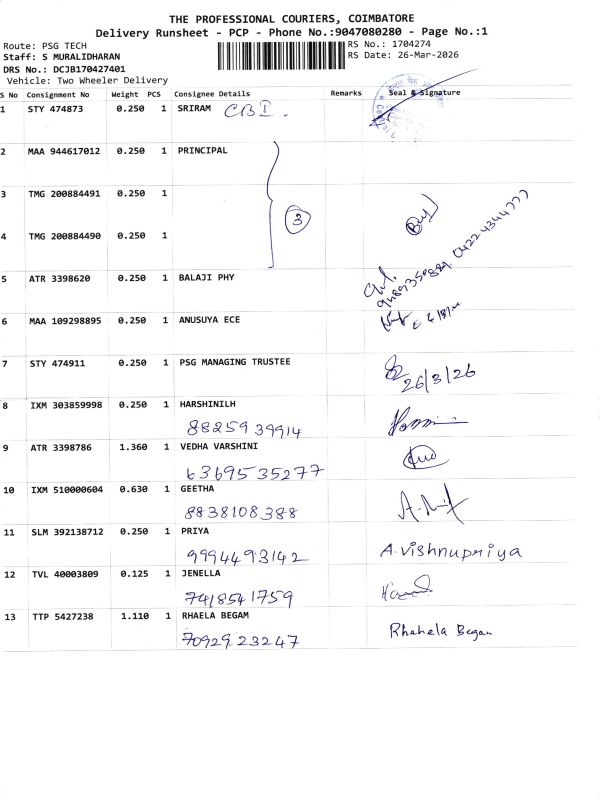 THE PROFESSIONAL COURIERS, COIMBATORE
Delivery Runsheet - PCP - Phone No.:9047080280 - Page No.:1
Route: PSG TECH RS No.: 1704274
Staff: S MURALIDHARAN RS Date: 26-Mar-2026
DRS No.: DCJB170427401
Vehicle: Two Wheeler Delivery
S No Consignment No Weight PCS Consignee Details Remarks Seal & Signature
1 STY 474873 0.250 1 SRIRAM CBI.
2 MAA 944617012 0.250 1 PRINCIPAL
3 TMG 200884491 0.250 1 3
4 TMG 200884490 0.250 1
5 ATR 3398620 0.250 1 BALAJI PHY
6 MAA 109298895 0.250 1 ANUSUYA ECE
7 STY 474911 0.250 1 PSG MANAGING TRUSTEE
26/3/26
8 IXM 303859998 0.250 1 HARSHINILH
8825939914
9 ATR 3398786 1.360 1 VEDHA VARSHINI
6369535277
10 IXM 510000604 0.630 1 GEETHA
8838108388
11 SLM 392138712 0.250 1 PRIYA
9994493142 A.Vishnupriya
12 TVL 40003809 0.125 1 JENELLA
7418541759
13 TTP 5427238 1.110 1 RHAELA BEGAM
7092923247 Rhahela Began